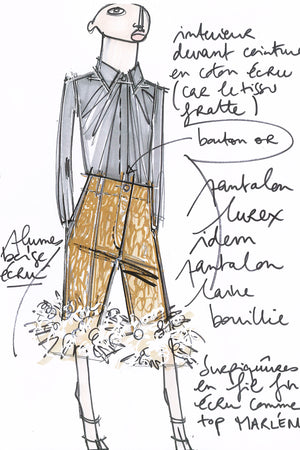 interieur
devant ceinture
en coton écru
(car le tissu
gratte)
bouton or
pantalon
lurex
idem
pantalon
laine
bouillie
plumes
beige
écru
surpiqûres
en fil
écru comme
top MARLÈN